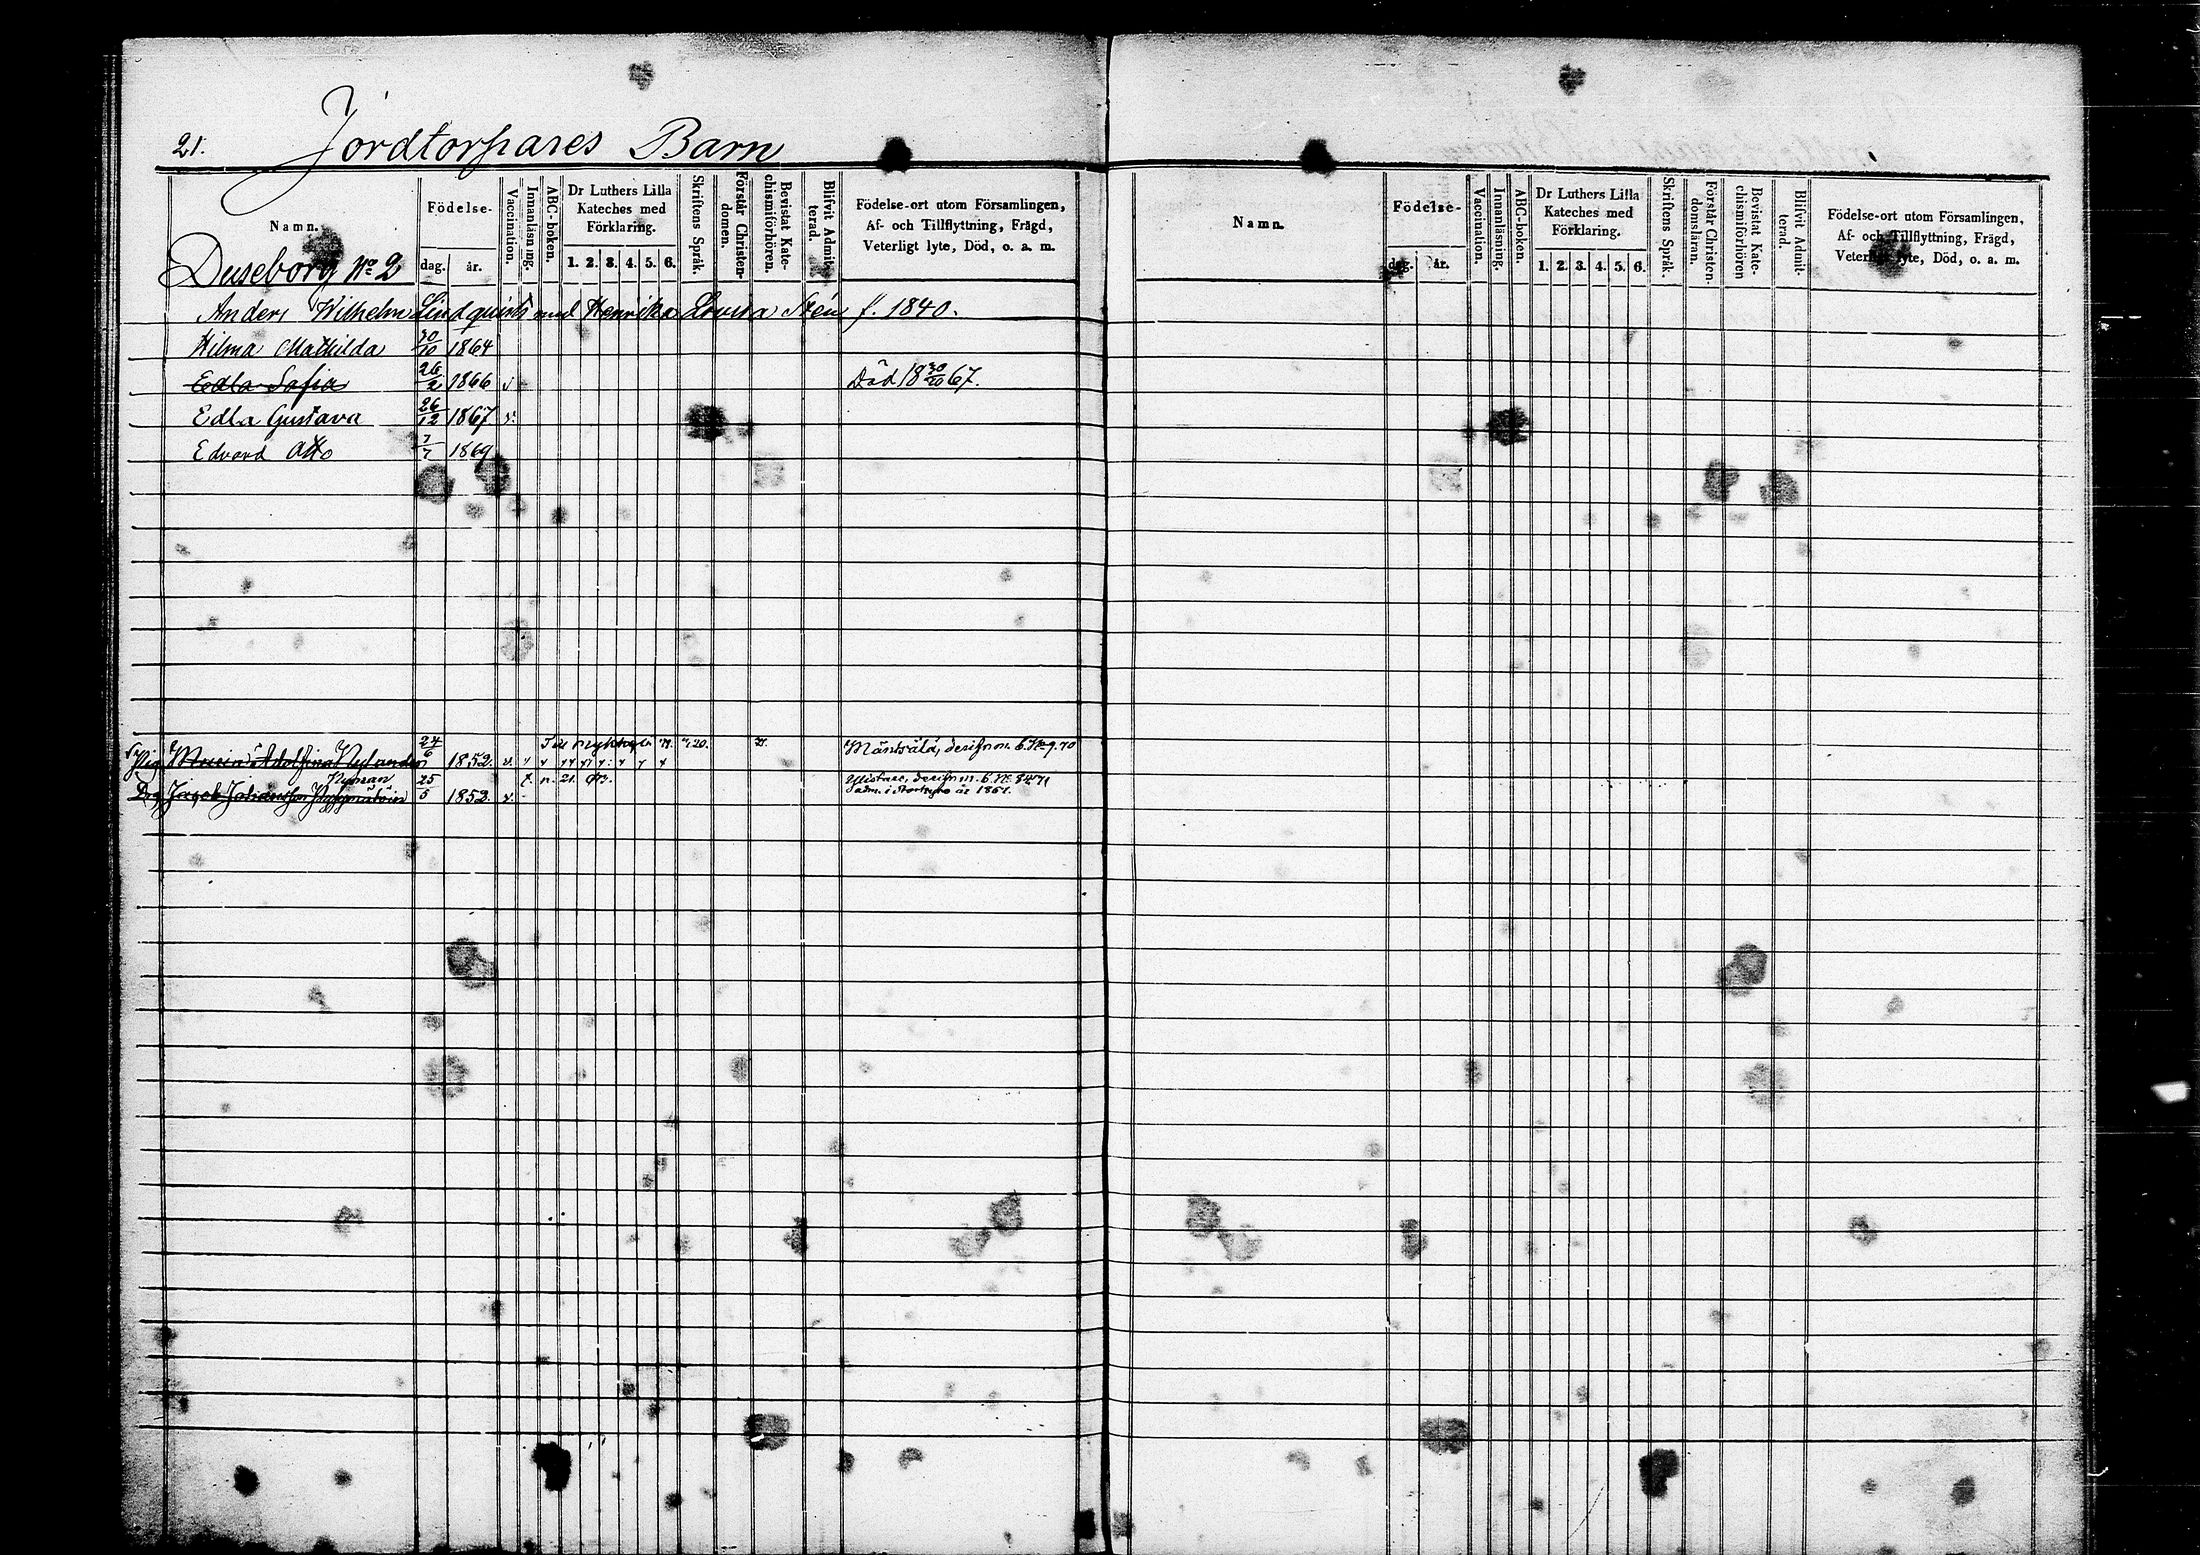 21. Jordtorpares Barn
Namn.
Födelse-
dag. år.
Vaccination.
Innanläsning.
ABC-boken.
Dr Luthers Lilla
Kateches med
Förklaring.
1. 2. 3. 4. 5. 6.
Skriftens Språk.
Förstår Christen-
domen.
Bevistat Kate-
chismiförhören.
Blifvit Admit-
terad.
Födelse-ort utom Församlingen,
Af- och Tillflyttning, Frägd,
Veterligt lyte, Död, o. a. m.
Duseborg No 2
Anders Wilhelm Lindquists med Henrika Lovisa Stén f. 1840.
Hilma Mathilda 30/10 1864
Edla Sofia 26/2 1866 Död 18 30/10 67.
Edla Gustava 26/12 1867 v.
Edvard Otto 7/7 1869
Pig. Maria Adolfina Nylander 27/6 1852. v. Mäntsälä,
Nyman
Drg Jacob Johansson 25/5 1852. v. n. 21.
adm. i
Namn.
Födelse-
dag. år.
Vaccination.
Innanläsning.
ABC-boken.
Dr Luthers Lilla
Kateches med
Förklaring.
1. 2. 3. 4. 5. 6.
Skriftens Språk.
Förstår Christen-
domsläran.
Bevistat Kate-
chismiförhören
Blifvit Admit-
terad.
Födelse-ort utom Församlingen,
Af- och Tillflyttning, Frägd,
Veterligt lyte, Död, o. a. m.